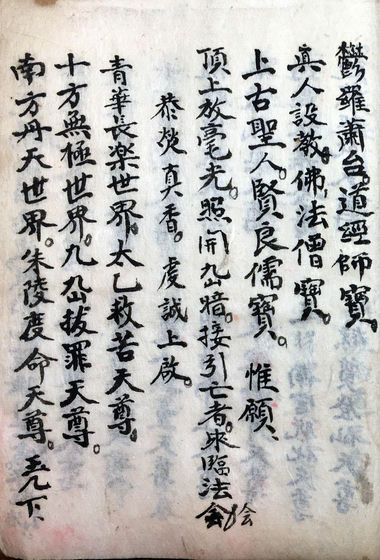 鬱羅蕭台。道經師寶。
真人設教。佛法僧寶。
上古聖人。賢良儒寶。惟願、
頂上放毫光。照開九幽暗。接引亡者。來臨法會 会
恭焚真香。虔誠上啟。
青華長楽世界。太乙救苦天尊。
十方無極世界。九幽拔罪天尊。
南方丹天世界。朱陵度命天尊。